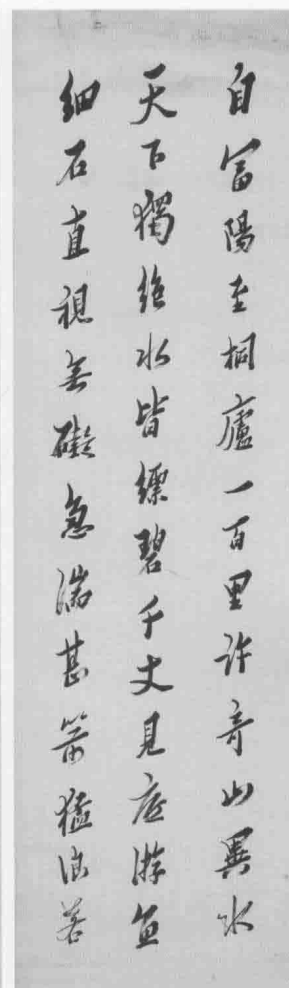 自富陽至桐廬一百里許奇山異水
天下獨絶水皆縹碧千丈見底游魚
細石直視無礙急湍甚箭猛浪若